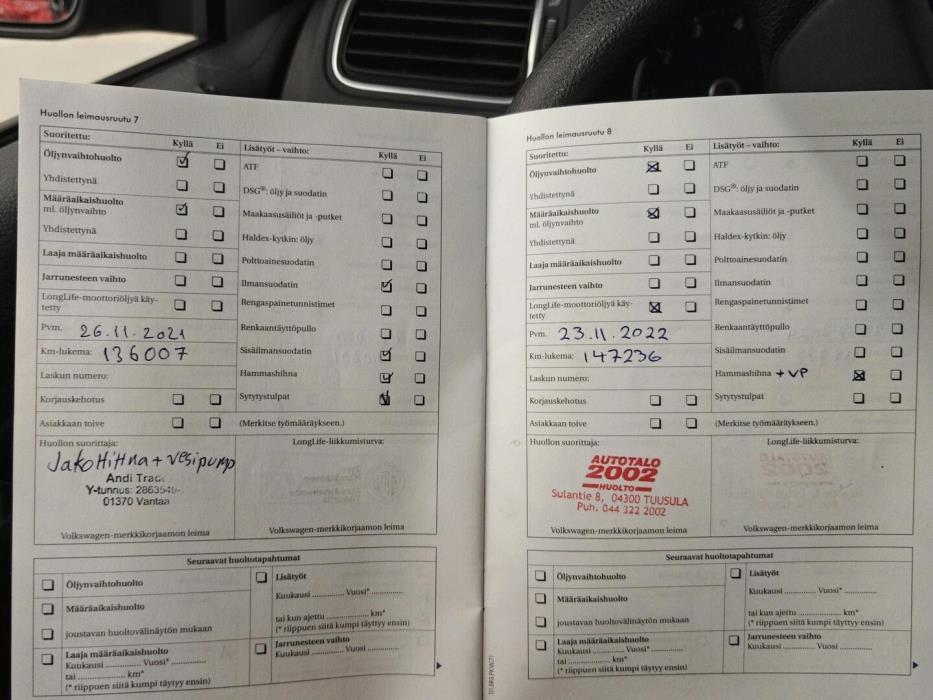 Huollon leimausruutu 7
Suoritettu:
Kyllä Ei
Öljynvaihtohuolto
Yhdistettynä
Määräaikaishuolto
ml. öljynvaihto
Yhdistettynä
Laaja määräaikaishuolto
Jarrunesteen vaihto
LongLife-moottoriöljyä käy-
tetty
Pvm. 26.11.2021
Km-lukema: 136007
Laskun numero:
Korjauskehotus
Asiakkaan toive
Lisätyöt – vaihto:
Kyllä Ei
ATF
DSG®: öljy ja suodatin
Maakaasusäiliöt ja -putket
Haldex-kytkin: öljy
Polttoainesuodatin
Ilmansuodatin
Rengaspainetunnistimet
Renkaantäyttöpullo
Sisäilmansuodatin
Hammashihna
Sytytystulpat
(Merkitse työmääräykseen.)
Huollon suorittaja:
JakoHiHna + vesipump
Andi
Y-tunnus:
01370 Vantaa
Volkswagen-merkkikorjaamon leima
LongLife-liikkumisturva:
Volkswagen-merkkikorjaamon leima
Seuraavat huoltotapahtumat
Öljynvaihtohuolto
Määräaikaishuolto
joustavan huoltovälinäytön mukaan
Laaja määräaikaishuolto
Kuukausi ............ Vuosi* ............
tai ............ km*
(* riippuen siitä kumpi täytyy ensin)
Lisätyöt
Kuukausi ............ Vuosi* ............
tai kun ajettu ............ km*
(* riippuen siitä kumpi täytyy ensin)
Jarrunesteen vaihto
Kuukausi ............ Vuosi ............
Huollon leimausruutu 8
Suoritettu:
Kyllä Ei
Öljynvaihtohuolto
Yhdistettynä
Määräaikaishuolto
ml. öljynvaihto
Yhdistettynä
Laaja määräaikaishuolto
Jarrunesteen vaihto
LongLife-moottoriöljyä käy-
tetty
Pvm. 23.11.2022
Km-lukema: 147236
Laskun numero:
Korjauskehotus
Asiakkaan toive
Lisätyöt – vaihto:
Kyllä Ei
ATF
DSG®: öljy ja suodatin
Maakaasusäiliöt ja -putket
Haldex-kytkin: öljy
Polttoainesuodatin
Ilmansuodatin
Rengaspainetunnistimet
Renkaantäyttöpullo
Sisäilmansuodatin
Hammashihna + VP
Sytytystulpat
(Merkitse työmääräykseen.)
Huollon suorittaja:
AUTOTALO
2002
HUOLTO
Sulantie 8, 04300 TUUSULA
Puh. 044 322 2002
Volkswagen-merkkikorjaamon leima
LongLife-liikkumisturva:
Volkswagen-merkkikorjaamon leima
Seuraavat huoltotapahtumat
Öljynvaihtohuolto
Määräaikaishuolto
joustavan huoltovälinäytön mukaan
Laaja määräaikaishuolto
Kuukausi ............ Vuosi* ............
tai ............ km*
(* riippuen siitä kumpi täytyy ensin)
Lisätyöt
Kuukausi ............ Vuosi* ............
tai kun ajettu ............ km*
(* riippuen siitä kumpi täytyy ensin)
Jarrunesteen vaihto
Kuukausi ............ Vuosi ............